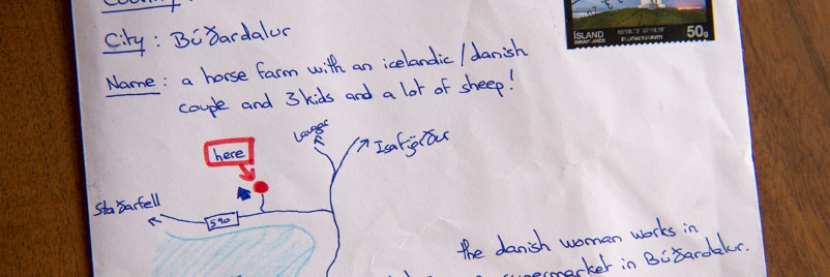 Country:
City: Búðardalur
Name: a horse farm with an icelandic/danish
couple and 3 kids and a lot of sheep!
ÍSLAND
50g
Laugar
Isafjörður
here
Staðarfell
590
the danish woman works in
supermarket in Búðardalur.